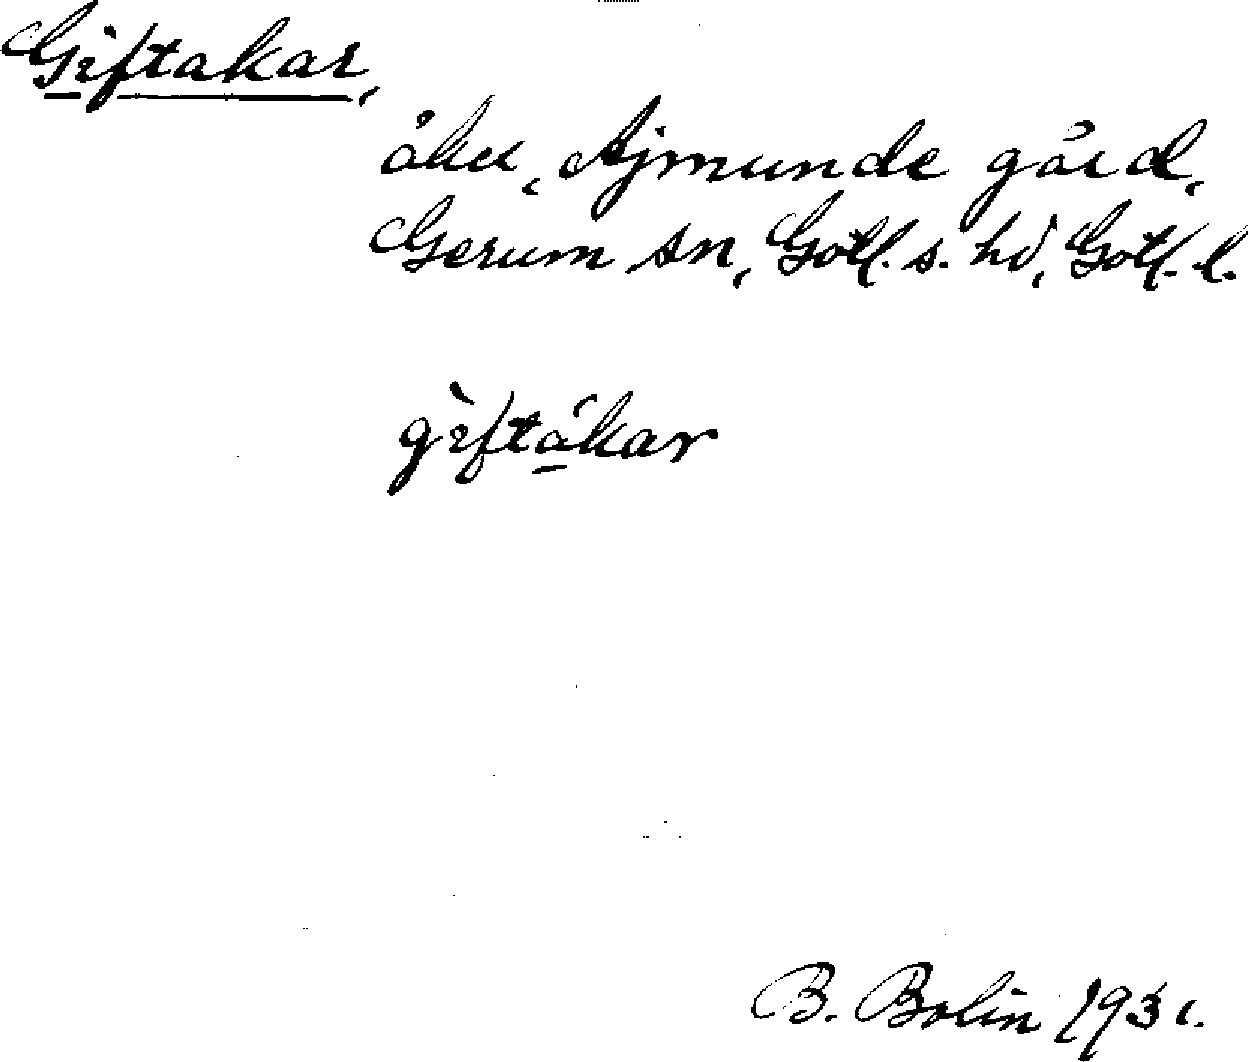 Giftakar,
åker, Ajmunde gård,
Gerum sn, Gotl. s. hd, Gotl. l.
gìftákar
B. Bolin 1931.